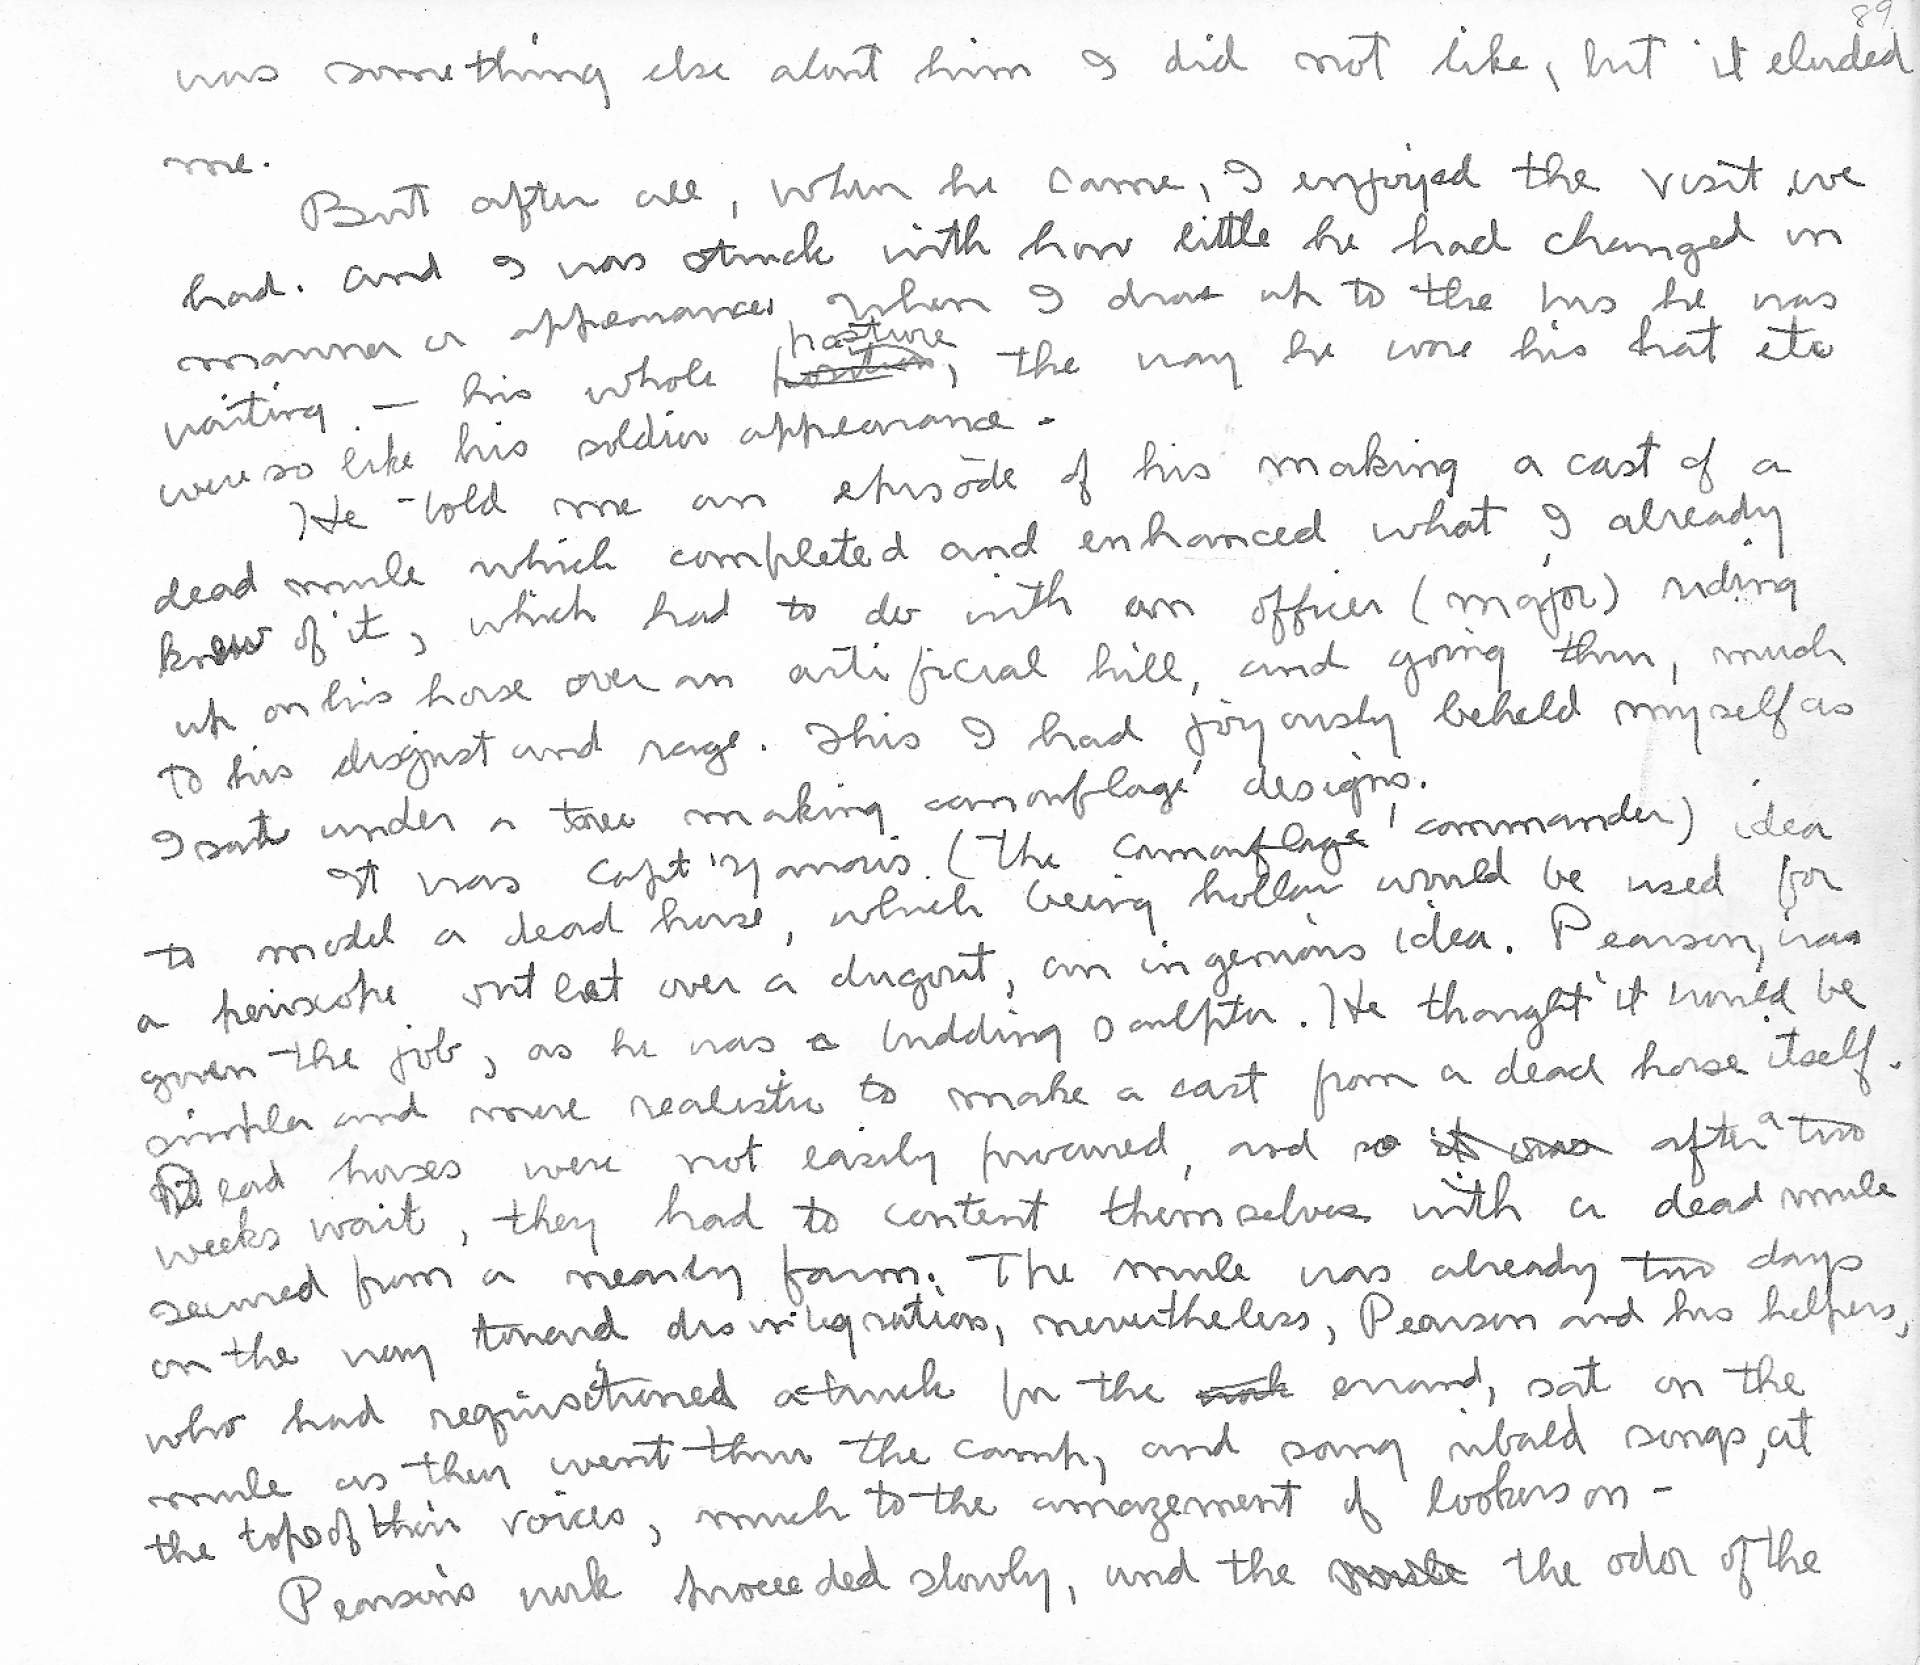 89
was something else about him I did not like, but it eluded
me.
But after all, when he came, I enjoyed the visit we
had. And I was struck with how little he had changed in
manner or appearance. When I drove up to the bus he was
waiting – his whole posture, the way he wore his hat etc
were so like his soldier appearance.
He told me an episode of his making a cast of a
dead mule which completed and enhanced what I already
knew of it, which had to do with an officer (major) riding
up on his horse over an artificial hill, and going thru, much
to his disgust and rage. This I had joyously beheld myself as
I sat under a tree making camouflage designs.
It was Capt (the camouflage commander) idea
to model a dead horse, which being hollow would be used for
a periscope outlet over a dugout, an ingenious idea. Pearson, was
given the job, as he was a budding sculptor. He thought it would be
simpler and more realistic to make a cast from a dead horse itself.
Dead horses were not easily procured, and so it was after a two
weeks wait, they had to content themselves with a dead mule
secured from a nearby farm. The mule was already two days
on the way toward disintegration, nevertheless, Pearson and his helpers,
who had requisitioned a truck for the errand, sat on the
mule as they went thru the camp, and sang ribald songs, at
the tops of their voices, much to the amazement of lookers on –
Pearson's work proceeded slowly, and the mule the odor of the